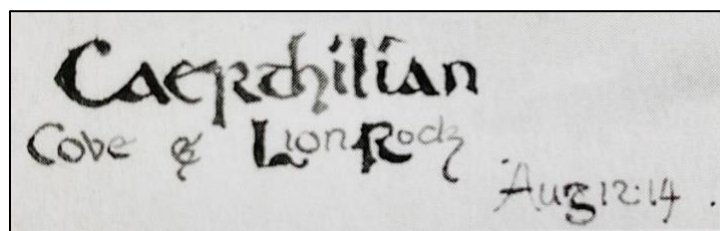 Caerthilian
Cove & Lion Rock
Aug 12·14.